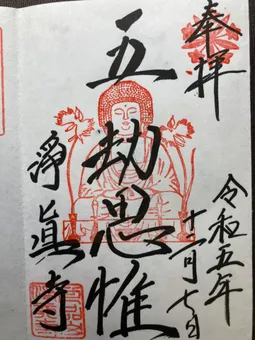 奉拝
令和五年
十一月七日
五劫思惟
淨眞寺